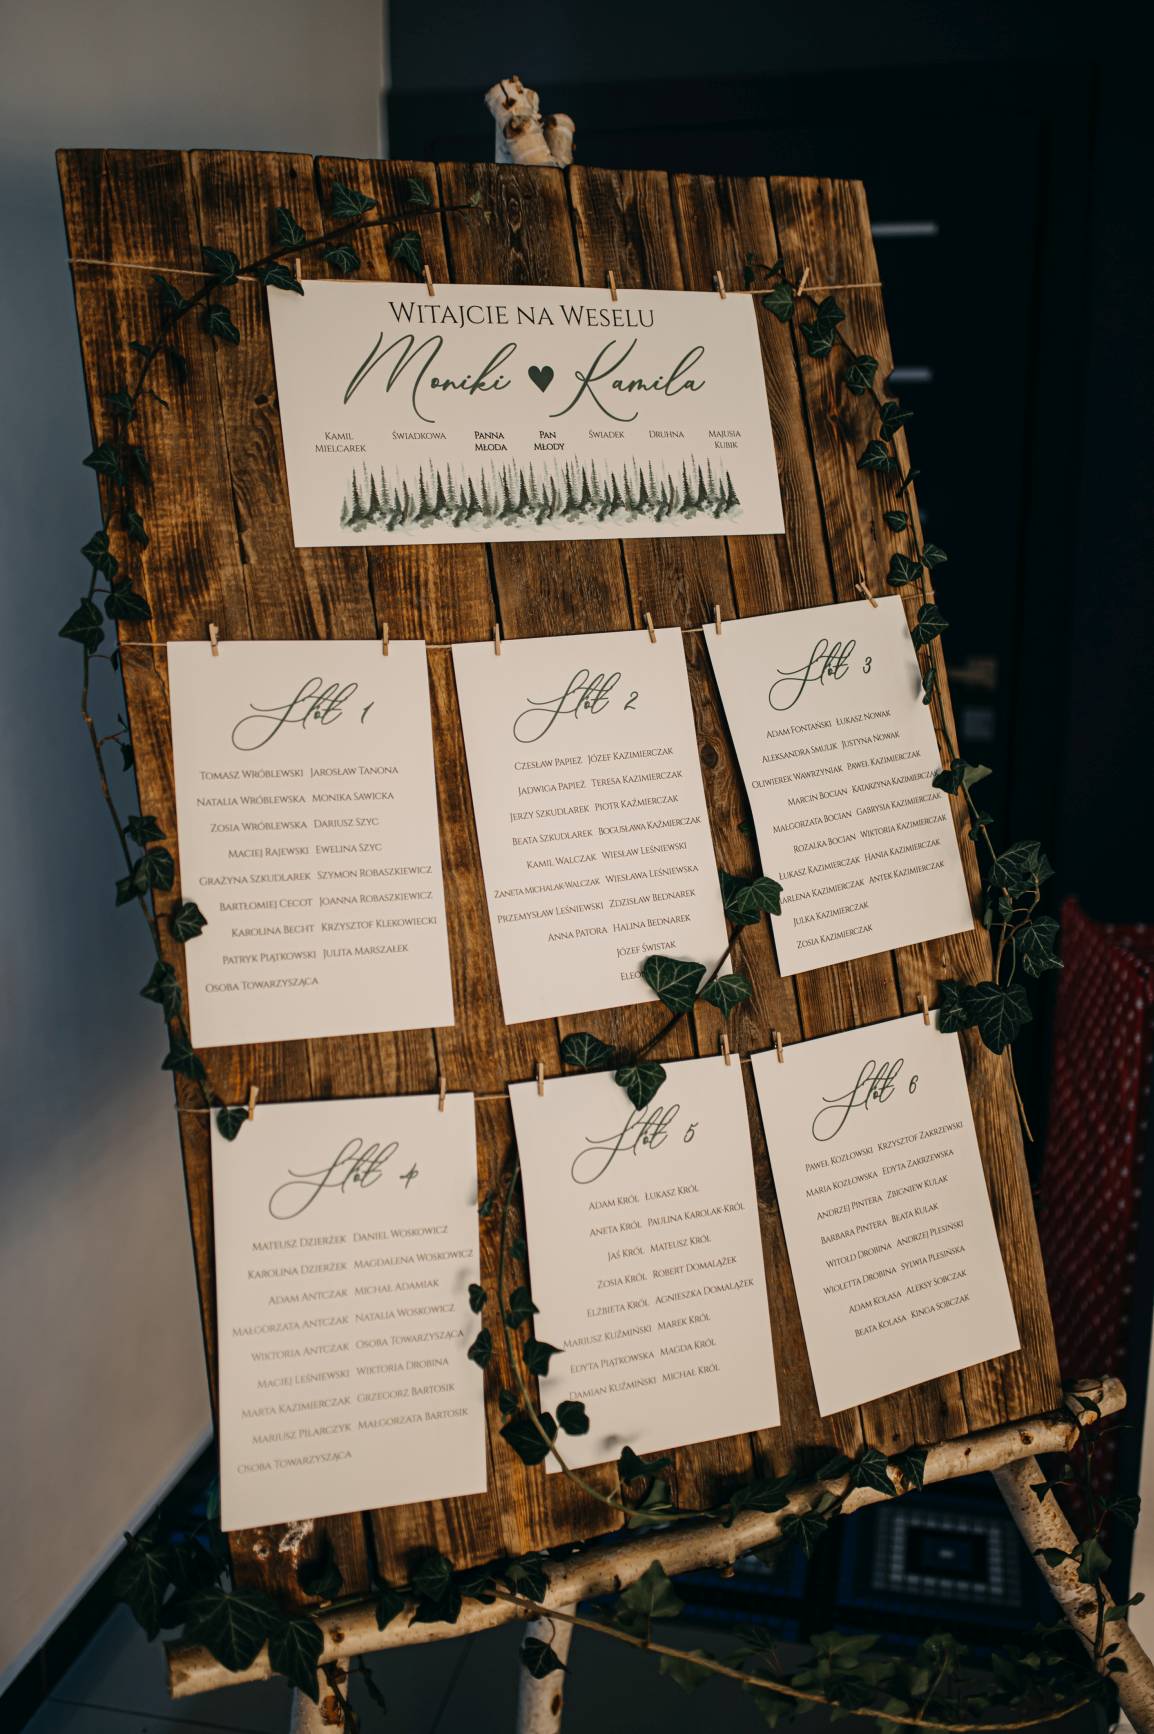 Witajcie na Weselu
Moniki ♥ Kamila
Kamil Mielcarek
Świadkowa
Panna Młoda
Pan Młody
Świadek
Druhna
Majusia Kubik
Stół 1
Tomasz Wróblewski Jarosław Tanona
Natalia Wróblewska Monika Sawicka
Zosia Wróblewska Dariusz Szyc
Maciej Rajewski Ewelina Szyc
Grażyna Szkudlarek Szymon Robaszkiewicz
Bartłomiej Cecot Joanna Robaszkiewicz
Karolina Becht Krzysztof Klekowiecki
Patryk Piątkowski Julita Marszałek
Osoba Towarzysząca
Stół 2
Czesław Papież Józef Kazimierczak
Jadwiga Papież Teresa Kazimierczak
Jerzy Szkudlarek Piotr Kaźmierczak
Beata Szkudlarek Bogusława Kaźmierczak
Kamil Walczak Wiesław Leśniewski
Żaneta Michalak-Walczak Wiesława Leśniewska
Przemysław Leśniewski Zdzisław Bednarek
Anna Patora Halina Bednarek
Józef Świstak
Stół 3
Adam Fontański Łukasz Nowak
Aleksandra Smulik Justyna Nowak
Oliwierek Wawrzyniak Paweł Kazimierczak
Marcin Bocian Katarzyna Kazimierczak
Małgorzata Bocian Gabrysia Kazimierczak
Rozalka Bocian Wiktoria Kazimierczak
Łukasz Kazimierczak Hania Kazimierczak
Marlena Kazimierczak Antek Kazimierczak
Julka Kazimierczak
Zosia Kazimierczak
Stół 4
Mateusz Dzierżek Daniel Woskowicz
Karolina Dzierżek Magdalena Woskowicz
Adam Antczak Michał Adamiak
Małgorzata Antczak Natalia Woskowicz
Wiktoria Antczak Osoba Towarzysząca
Maciej Leśniewski Wiktoria Drobina
Marta Kazimierczak Grzegorz Bartosik
Mariusz Pilarczyk Małgorzata Bartosik
Osoba Towarzysząca
Stół 5
Adam Król Łukasz Król
Aneta Król Paulina Karolak-Król
Jaś Król Mateusz Król
Zosia Król Robert Domalążek
Elżbieta Król Agnieszka Domalążek
Mariusz Kuźmiński Marek Król
Edyta Piątkowska Magda Król
Damian Kuźmiński Michał Król
Stół 6
Paweł Kozłowski Krzysztof Zakrzewski
Maria Kozłowska Edyta Zakrzewska
Andrzej Pintera Zbigniew Kulak
Barbara Pintera Beata Kulak
Witold Drobina Andrzej Plesiński
Wioletta Drobina Sylwia Plesińska
Adam Kolasa Aleksy Sobczak
Beata Kolasa Kinga Sobczak